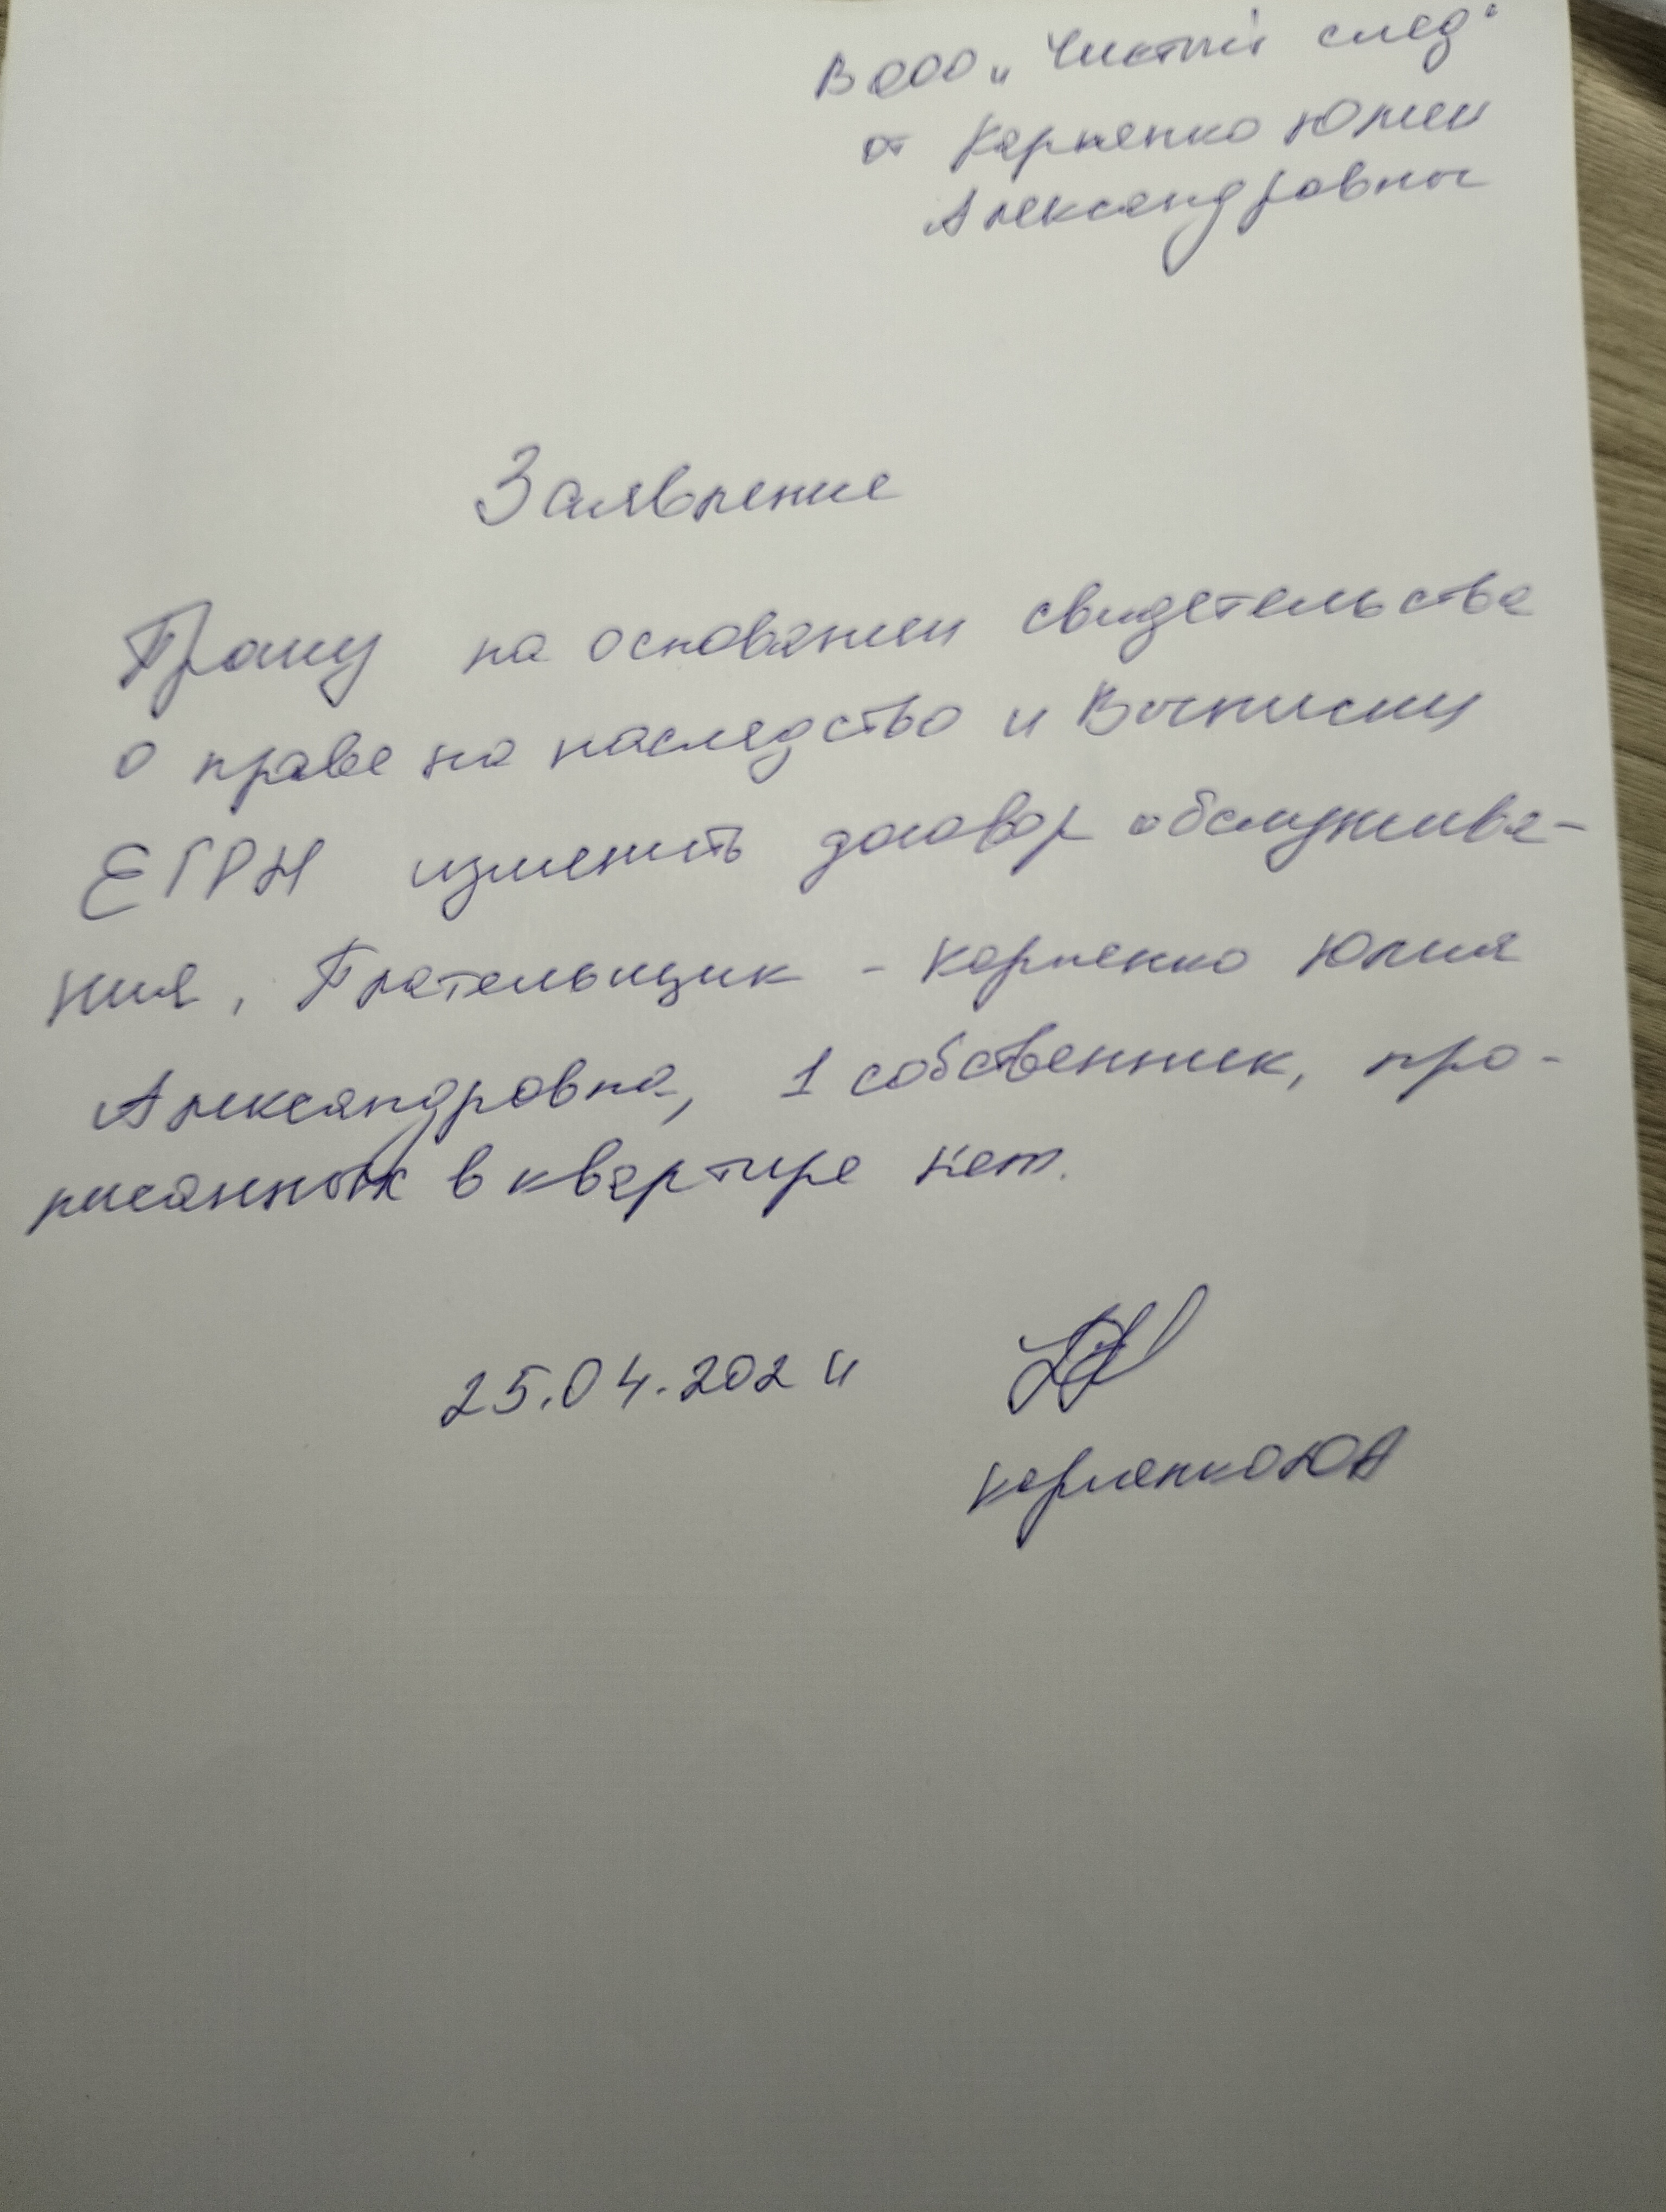 В ООО „Чистый след"
от Карпенко Юлии
Александровны
Заявление
Прошу на основании свидетельства
о праве на наследство и Выписки
ЕГРН изменить договор обслужива-
ния, Плательщик - Карпенко Юлия
Александровна, 1 собственник, про-
писанных в квартире нет.
25.04.2024
Карпенко ЮА